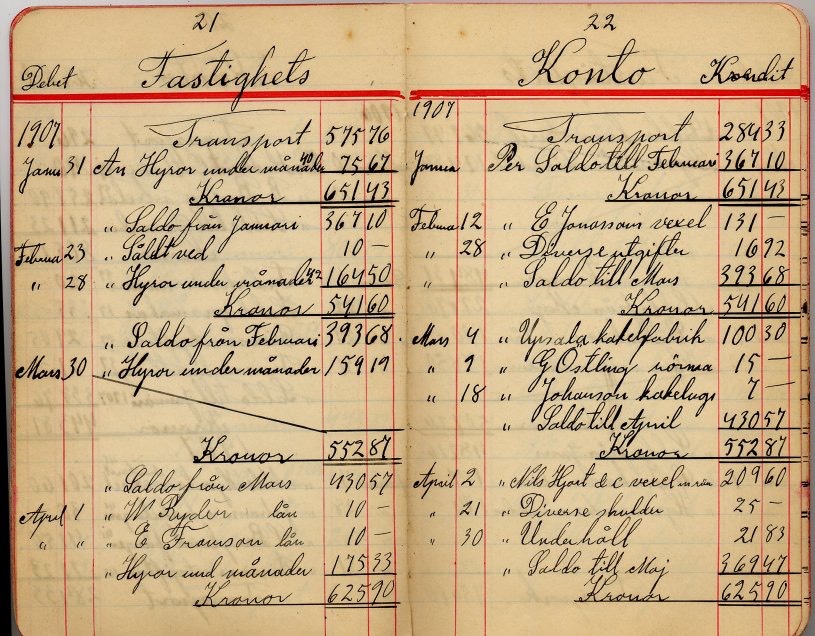 21
Debet Fastighets
1907 Transport 575 76
Janu 31 An Hyror under månader 75 67
Kronor 651 43
„ Saldo från Januari 367 10
Februa 23 „ Såldt ved 10 —
„ 28 „ Hyror under månader 42 164 50
Kronor 541 60
„ Saldo från Februari 393 68
Mars 30 „ Hyror under månader 159 19
Kronor 552 87
„ Saldo från Mars 430 57
April 1 „ W Ryder lån 10 —
„ „ „ E Framson lån 10 —
„ Hyror und månader 175 33
Kronor 625 90
22
Konto Kredit
1907
Transport 284 33
Janua Per Saldo till Februari 367 10
Kronor 651 43
Februa 12 „ E Jonassons vexel 131 —
„ 28 „ Diverse utgifter 16 92
„ „ Saldo till Mars 393 68
Kronor 541 60
Mars 4 „ Upsala kakelfabrik 100 30
„ 9 „ G Östling 15 —
„ 18 „ Johanson kakelugs 7 —
„ Saldo till April 430 57
Kronor 552 87
April 2 „ Nils Hjort & C vexel 209 60
„ 21 „ Diverse skulder 25 —
„ 30 „ Underhåll 21 83
„ Saldo till Maj 369 47
Kronor 625 90